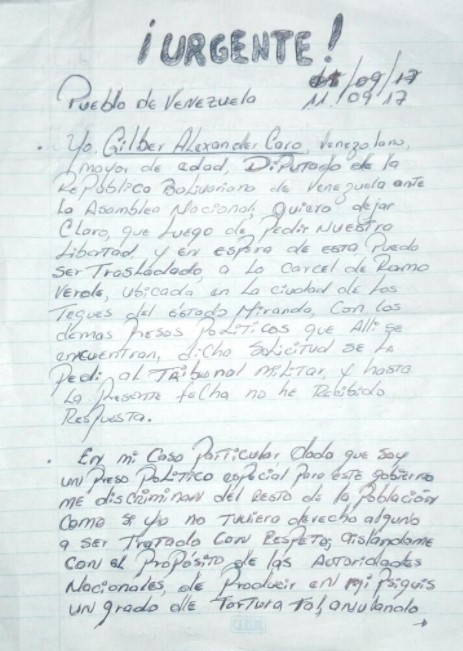 ¡URGENTE!
11/09/17
Pueblo de Venezuela 11/09/17
. Yo, Gilber Alexander Caro, Venezolano,
mayor de edad, Diputado de la
República Bolivariana de Venezuela ante
La Asamblea Nacional, quiero dejar
Claro, que Luego de Pedir Nuestra
Libertad, y en espera de esta Pueda
Ser Trasladado, a La Carcel de Ramo
Verde, ubicada en La Ciudad de Los
Teques del estado Miranda, Con los
demas Presos Politicos que Alli se
encuentran, dicha Solicitud se la
Pedi al Tribunal Militar, y hasta
La Presente fecha no he Recibido
Respuesta.
. En mi Caso Particular dado que soy
un Preso Politico especial Para este gobierno
me discriminan del Resto de la Población
Como si yo no Tuviera derecho alguno
a ser Tratado Con Respeto; aislandome
Con el Propósito de las Autoridades
Nacionales, de Producir en mi Psiquis
un grado de Tortura Tal, anulando